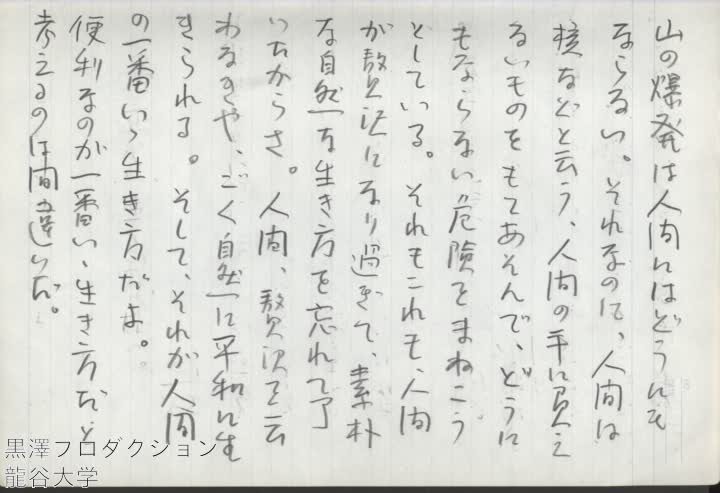 山の爆発は人間にはどうにも
ならない。それなのに、人間は
核などと云う、人間の手に負え
ないものをもてあそんで、どうに
もならない危険をまねこう
としている。それもこれも、人間
が贅沢になり過ぎて、素朴
な自然な生き方を忘れて了
いたからさ。人間、贅沢を云
わなきや、ごく自然に平和に生
きられる。そして、それが人間
の一番いゝ生き方だよ。
便利なのが一番いゝ生き方だと
考えるのは間違いだ。
黒澤プロダクション
龍谷大学